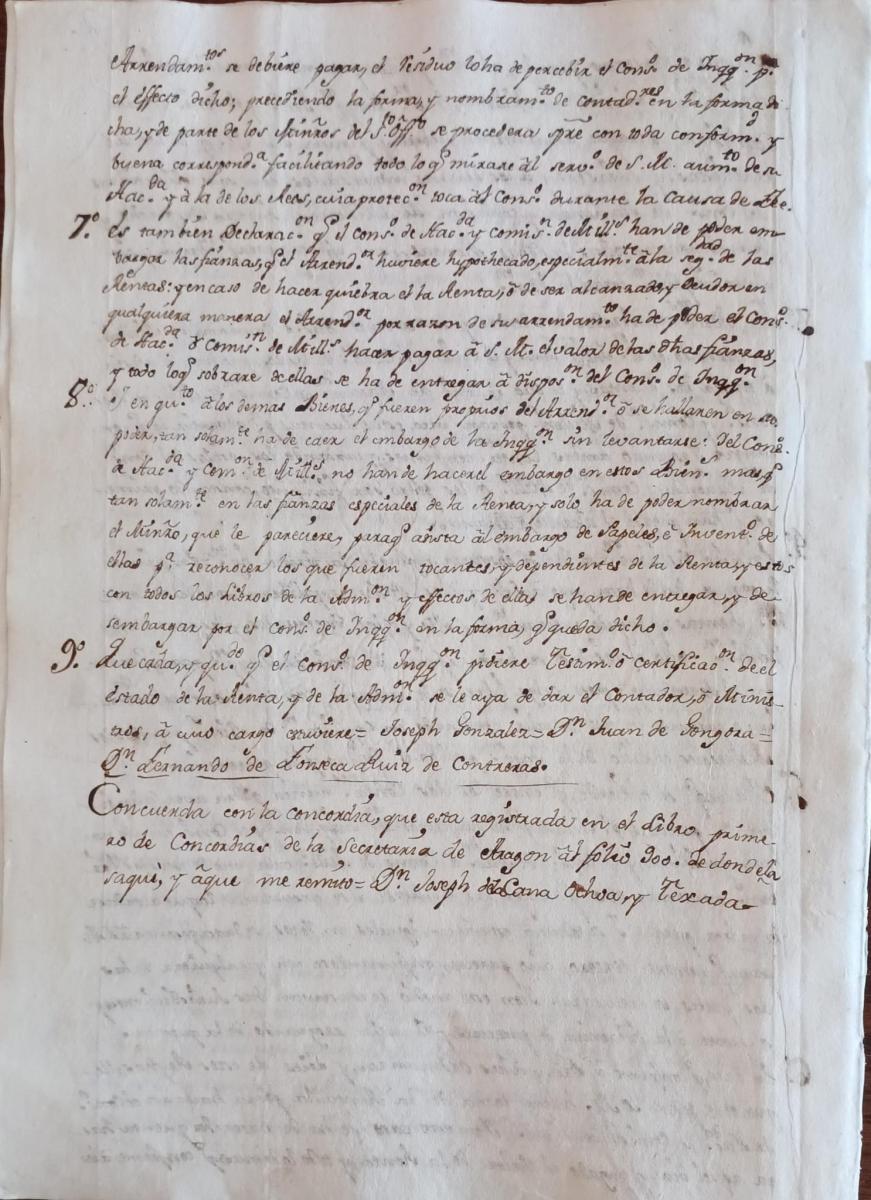 Arrendam.tos se debiere pagar, el residuo lo ha de percebir el Cons.o de Inqq.on p.a
el effecto dicho; precediendo la forma, y nombram.to de contad.res en la forma di-
cha, y de parte de los Minr̃os del S.to off.o se procedera spr̃e con toda conform.d y
buena correspond.a facilitando todo lo q̃ mirare ãl serv.o de S. M. aum.to de su
Hac.da y ã la de los Rees, cuia protec.on toca ãl Cons.o durante la causa de Fee.
7.o Es tambien Declarac.on q̃ el cons.o de Hac.da y comis.n de Mill.s han de poder em-
bargar las fianzas, q̃ el Arrend.or huviere hypothecado, especialm.te ã la seg.dad de las
Rentas: y en caso de hacer quiebra el la Renta, õ de ser alcanzado, y Deudor en
qualquiera manera el Arrend.or por razon de su arrendam.to ha de poder el Cons.o
de Hac.da y Comis.n de Mill.s hacer pagar ã S. M. el valor de las dh̃as fianzas,
y todo lo q̃ sobrare de ellas se ha de entregar ã dispos.on del Cons.o de Inqq.on
8.o Y en qu.to ã los demas Bienes, q̃ fueren proprios del Arrend.or õ se hallaren en su
poder, tan solam.te ha de caer el embargo de la Inqq.on sin levantarse: del Cons.o
de Hac.da y Com.on de Mill.s no han de hacer el embargo en estos Bien.s mas q̃
tan solam.te en las fianzas especiales de la Renta, y solo ha de poder nombrar
el Minr̃o, que le pareciere, para q̃ asista ãl embargo de Papeles, õ Invent.o de
ellas p.a reconocer los que fueren tocantes, y dependientes de la Renta, y estos
con todos los Libros de la Adm.on y effectos de ella se han de entregar, y de-
sembargar por el cons.o de Inqq.on en la forma, q̃ queda dicho.
9.o Que cada, y qu.do q̃ el Cons.o de Inqq.on pidiere Testim.o õ certificac.on de el
estado de la Renta, y de la Adm.on se le aya de dar el Contador, õ Minis-
tros, ã cuio cargo estuviere = Joseph Gonzalez = D.n Juan de Gongora =
D.n Fernando de Fonseca Ruiz de Contreras.
Concuerda con la concordia, que esta registrada en el Libro prime-
ro de Concordias de la Secretaria de Aragon ãl folio 300. de donde la
saquè, y ã que me remito = D.n Joseph de la Cana Ochoa, y Texada